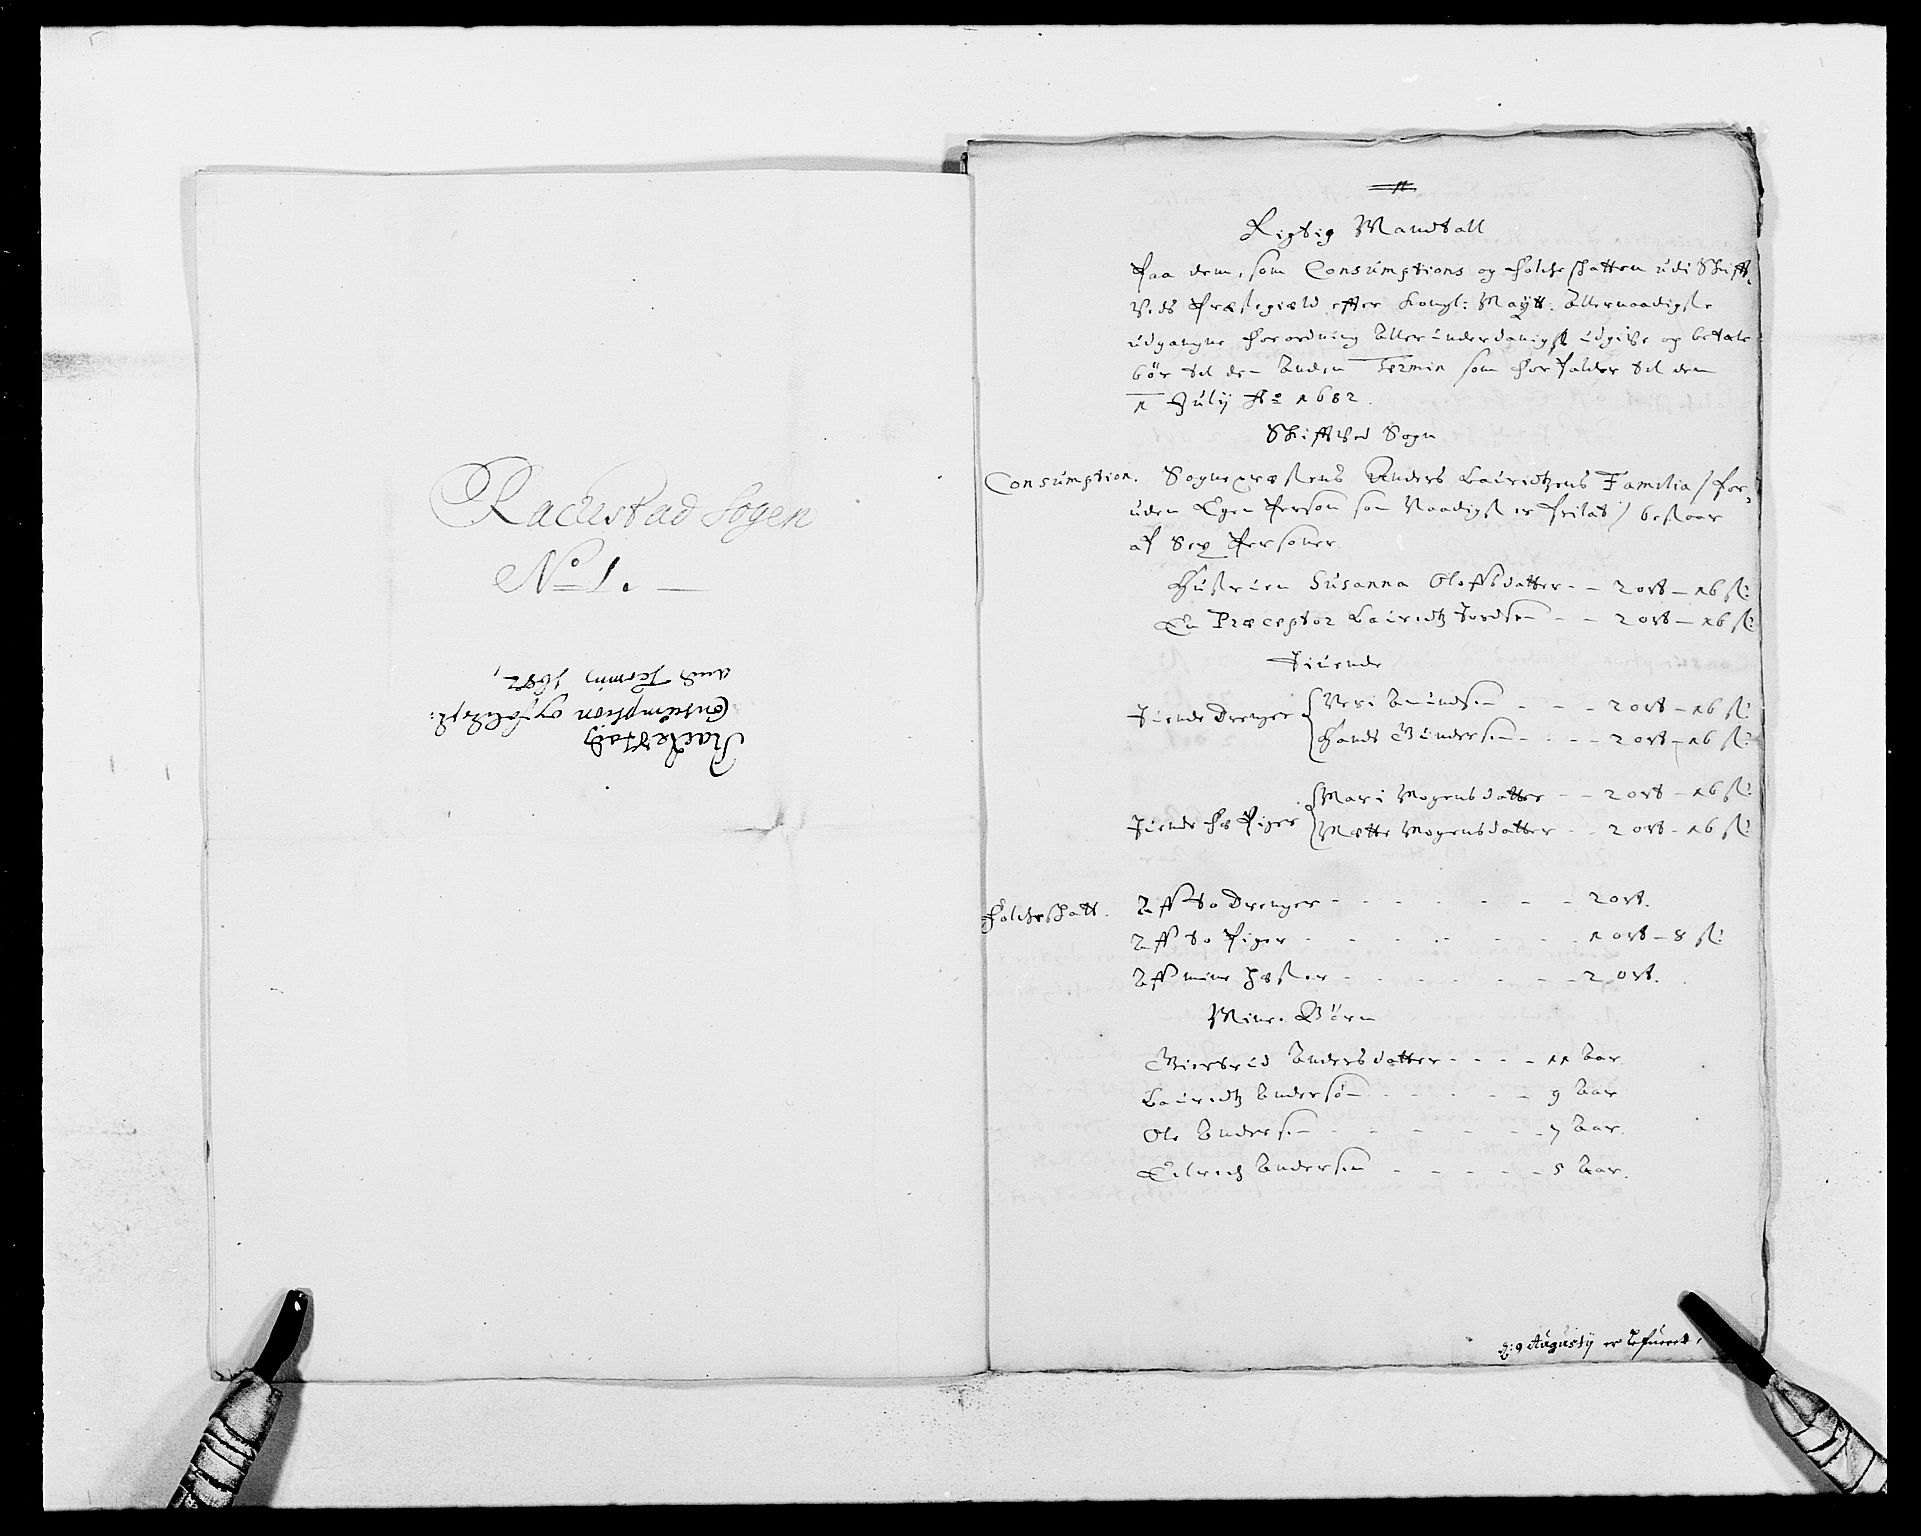 Rackestad Sogen
No 1.
Rackestad
Consumption og folckesk:
andt Termin 1682,
Rigtig Mandtall
Paa dem, som Consumptions og Folcheskatten udi Skifft-
veds Præstegield effter Kongl: Maÿtt. Allernaadigste
udgangne Forordning Allerunderdanigst udgifve og betale
bør til den Anden Termin som forfalder til den
1 Julij Ao 1682.
Skifftved Sogn
Consumption. Sognepræstens Anders Lauridtzens Familia / for-
uden Egen Person som Naadigst er frilat / bestaar
af Sex Personer
Hustruen Susanna Olofsdatter - - 2 ort - 16 sk:
En Præceptor Lauridtz Jordsen - - 2 ort - 16 sk:
Tiende
Tiende Drenger { Amundsen - - - 2 ort - 16 sk:
Hands Gundersen - - - 2 ort - 16 sk:
Tiende Piger { Mari Mogensdatter - - 2 ort - 16 sk:
Mætte Mogensdatter - - 2 ort - 16 sk:
Folcheskatt. Aff to Drenger - - - - - - 2 ort.
Aff to Piger - - - - - - 1 ort - 8 sk:
Aff mine Hester - - - - - - 2 ort.
Mine Børn
Andersdatter - - - - 11 Aar.
Lauridtz Andersøn - - - - - 9 Aar
Ole Andersen - - - - - 7 Aar.
Andersen - - - - - 5 Aar.
d: 9 Augustij er lefueret,